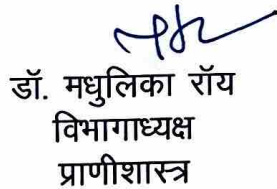 डॉ. मधुलिका रॉय
विभागाध्यक्ष
प्राणीशास्त्र